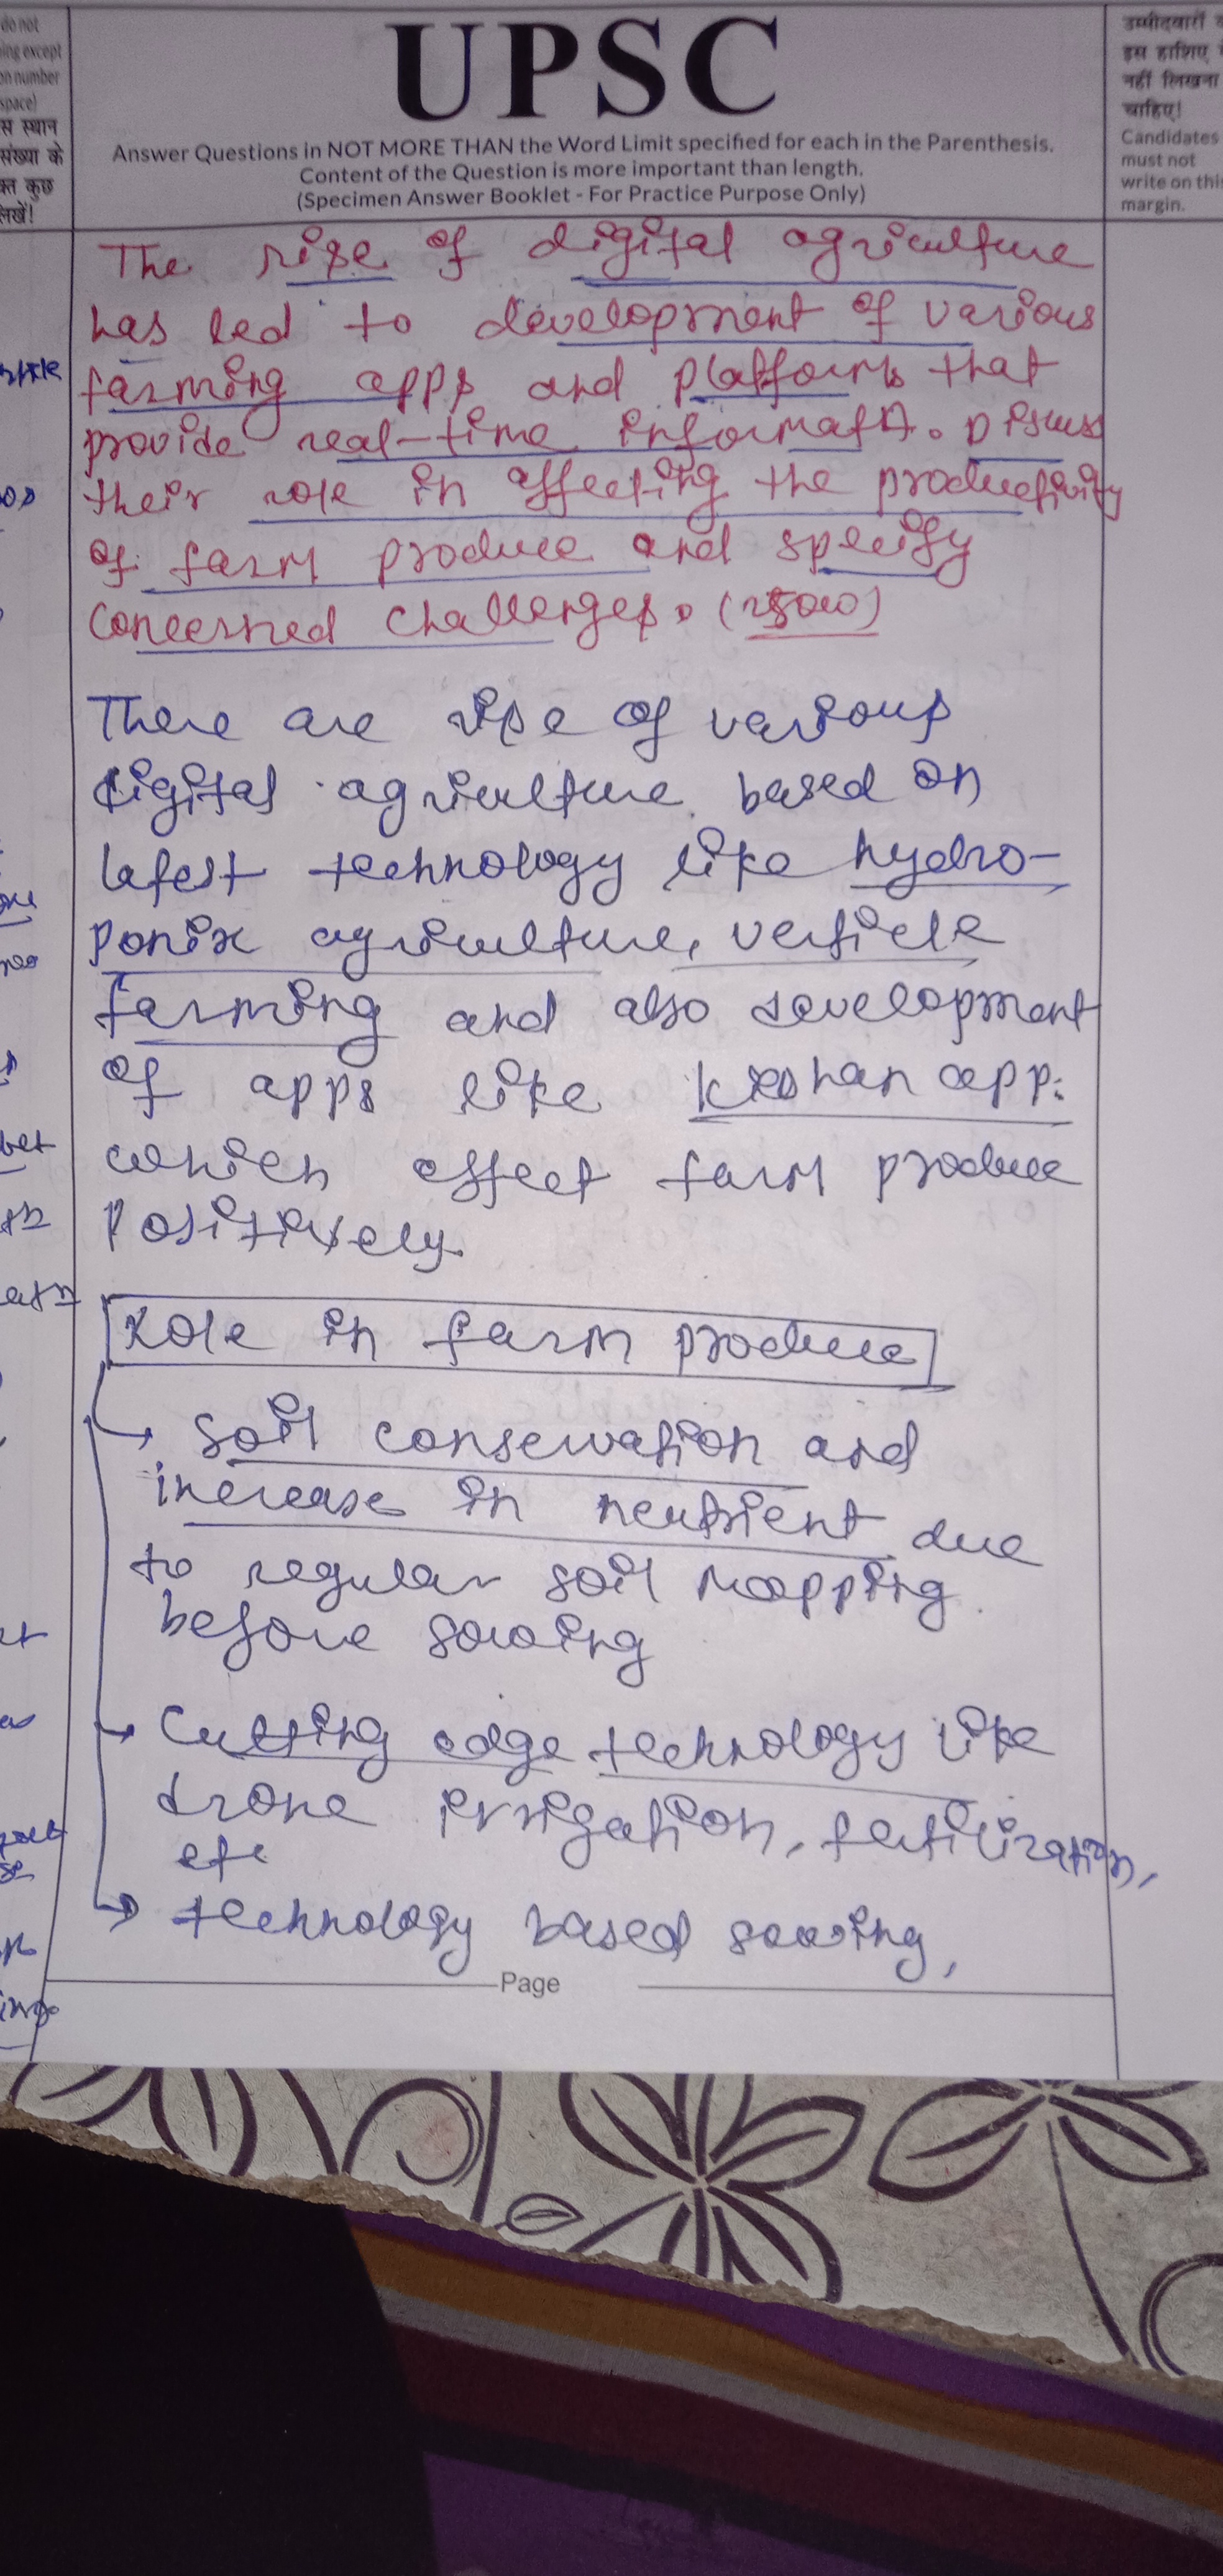 do not
ing except
on number
space)
स स्थान
संख्या के
क्त कुछ
लिखें!
UPSC
Answer Questions in NOT MORE THAN the Word Limit specified for each in the Parenthesis.
Content of the Question is more important than length.
(Specimen Answer Booklet - For Practice Purpose Only)
उम्मीदवारों
इस हाशिए
नहीं लिखना
चाहिए!
Candidates
must not
write on this
margin.
The rise of digital agriculture
has led to development of various
farming apps and platforms that
provide real-time informatn. Discuss
their role in affecting the productivity
of farm produce and specify
concerned challenges. (250w)
There are rise of various
digital agriculture based on
latest technology like hydro-
ponix agriculture, verticle
farming and also development
of apps like kishan app.
which effect farm produce
Positively.
Role in farm produce
→ Soil conservation and
increase in neutrient due
to regular soil mapping
before sowing
→ Cutting edge technology like
drone irrigation, fertilization,
etc
→ technology based sowing,
Page